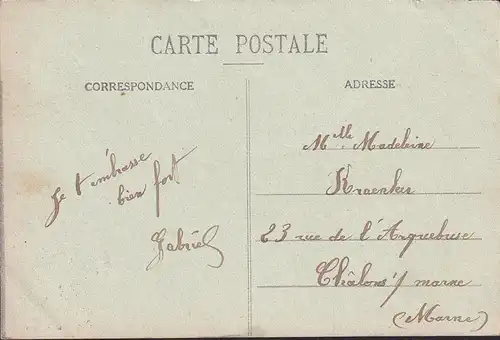 CARTE POSTALE
CORRESPONDANCE
Je t'embrasse
bien fort
Gabriel
ADRESSE
Mlle Madeleine
Kraenker
23 rue de l'Arquebuse
Châlons s/ marne
(Marne)